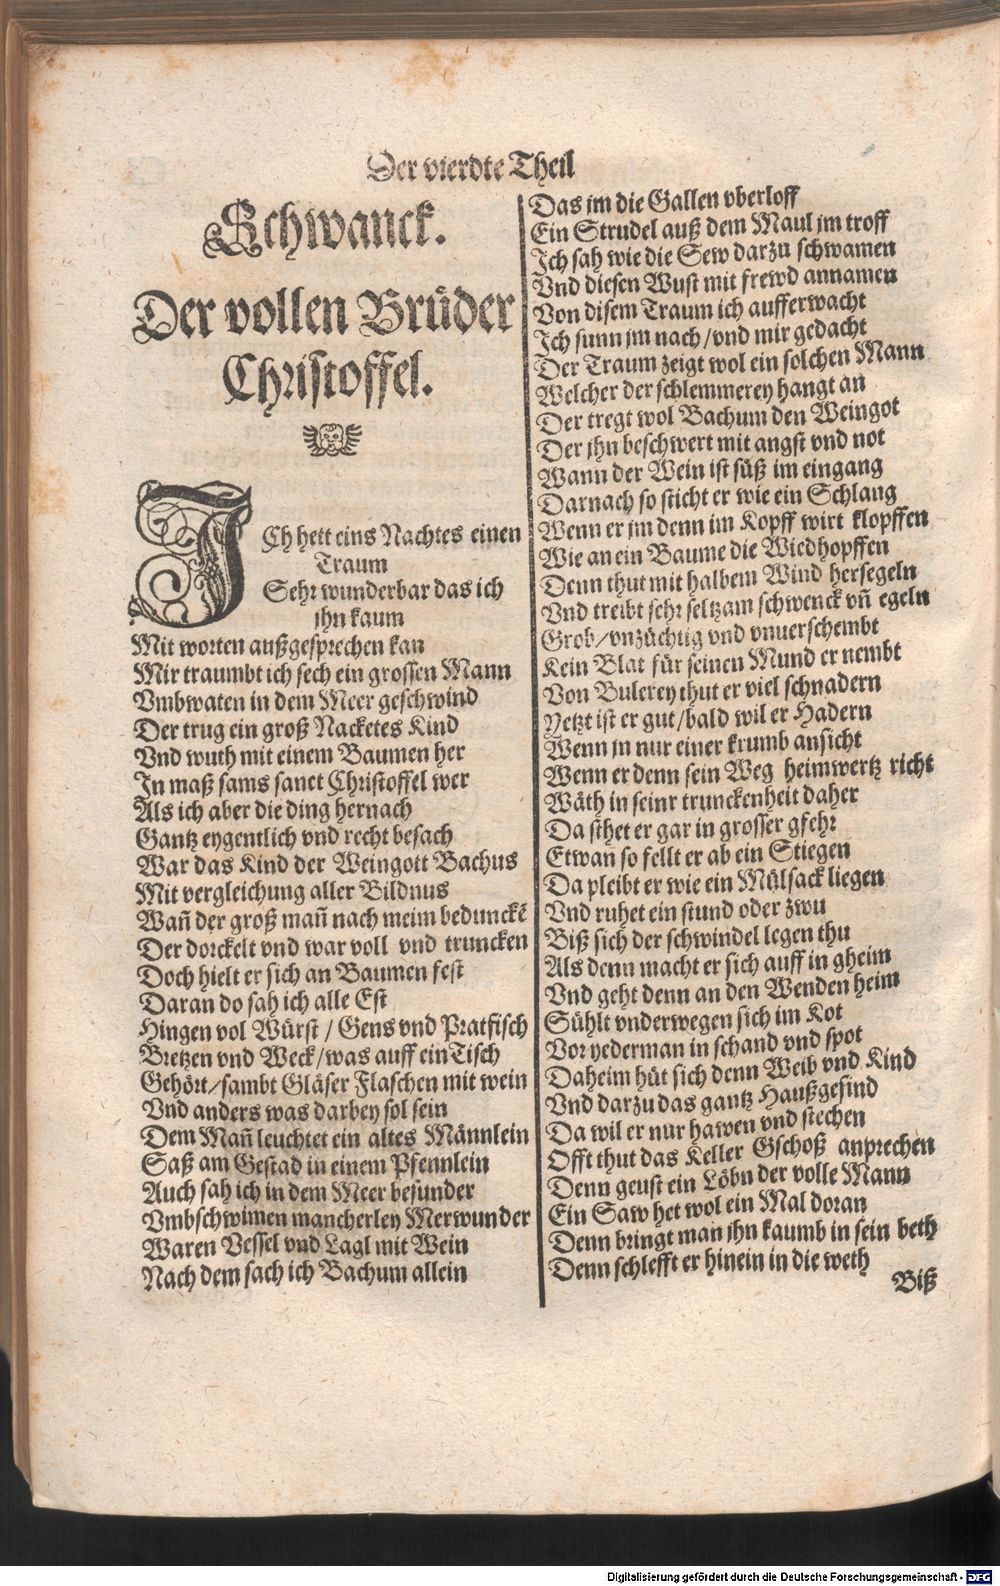 Der vierdte Theil
Schwanck.
Der vollen Brüder
Christoffel.
ICh hett eins Nachtes einen
Traum
Sehr wunderbar das ich
jhn kaum
Mit worten außgesprechen kan
Mir traumbt ich sech ein grossen Mann
Vmbwaten in dem Meer geschwind
Der trug ein groß Nacketes Kind
Vnd wuth mit einem Baumen her
In maß sams sanct Christoffel wer
Als ich aber die ding hernach
Gantz eygentlich vnd recht besach
War das Kind der Weingott Bachus
Mit vergleichung aller Bildnus
Wañ der groß mañ nach meim bedunckẽ
Der dorckelt vnd war voll vnd truncken
Doch hielt er sich an Baumen fest
Daran do sah ich alle Est
Hingen vol Würst / Gens vnd Pratfisch
Bretzen vnd Weck/was auff ein Tisch
Gehört/sambt Gläser Flaschen mit wein
Vnd anders was darbey sol sein
Dem Mañ leuchtet ein altes Männlein
Saß am Gestad in einem Pfennlein
Auch sah ich in dem Meer besunder
Vmbschwimen mancherley Merwunder
Waren Vessel vnd Lagl mit Wein
Nach dem sach ich Bachum allein
Das jm die Gallen vberloff
Ein Strudel auß dem Maul jm troff
Ich sah wie die Sew darzu schwamen
Vnd diesen Wust mit frewd annamen
Von disem Traum ich aufferwacht
Ich sunn jm nach/vnd mir gedacht
Der Traum zeigt wol ein solchen Mann
Welcher der schlemmerey hangt an
Der tregt wol Bachum den Weingot
Der jhn beschwert mit angst vnd not
Wann der Wein ist süß im eingang
Darnach so sticht er wie ein Schlang
Wenn er jm denn im Kopff wirt klopffen
Wie an ein Baume die Wiedhopffen
Denn thut mit halbem Wind hersegeln
Vnd treibt sehr seltzam schwenck vñ egeln
Grob/vnzüchtig vnd vnuerschembt
Kein Blat für seinen Mund er nembt
Von Bulerey thut er viel schnadern
Yetzt ist er gut/bald wil er Hadern
Wenn jn nur einer krumb ansicht
Wenn er denn sein Weg heimwertz richt
Wäth in seinr trunckenheit daher
Da sthet er gar in grosser gfehr
Etwan so fellt er ab ein Stiegen
Da pleibt er wie ein Mülsack liegen
Vnd ruhet ein stund oder zwu
Biß sich der schwindel legen thu
Als denn macht er sich auff in gheim
Vnd geht denn an den Wenden heim
Sühlt vnderwegen sich im Kot
Vor yederman in schand vnd spot
Daheim hüt sich denn Weib vnd Kind
Vnd darzu das gantz Haußgesind
Da wil er nur hawen vnd stechen
Offt thut das Keller Gschoß anprechen
Denn geust ein Löbn der volle Mann
Ein Saw het wol ein Mal doran
Denn bringt man jhn kaumb in sein beth
Denn schlefft er hinein in die weth
Biß
Digitalisierung gefördert durch die Deutsche Forschungsgemeinschaft - DFG